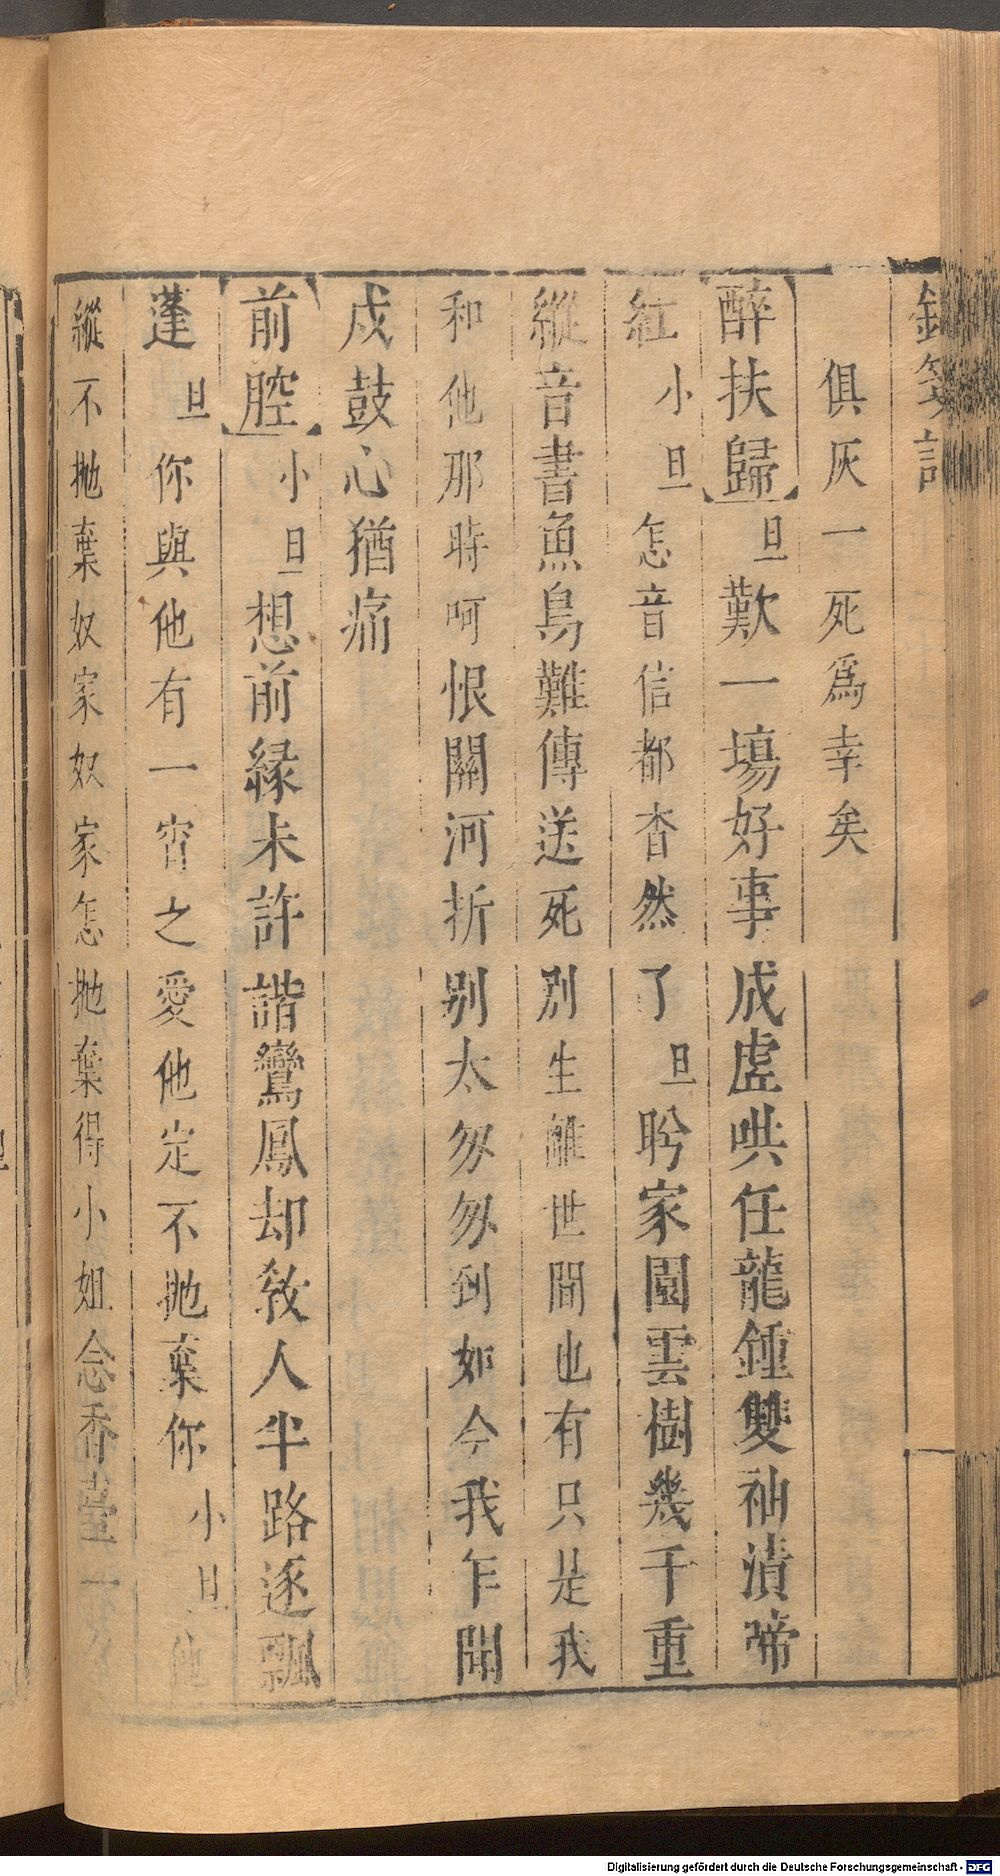 俱灰一死爲幸矣
【醉扶歸】旦歎一塲好事成虗哄任龍鍾雙袖漬啼
紅小旦怎音信都杳然了旦盻家園雲樹幾千重
縱音書魚鳥難傳送死別生離世間也有只是我
和他那時呵恨關河折别太匆匆到如今我乍聞
戍鼓心猶痛
【前腔】小旦想前緣未許諧鸞鳳却教人半路逐飄
蓬旦你與他有一宵之愛他定不拋棄你小旦他
縱不拋棄奴家奴家怎拋棄得小姐念香臺一
Digitalisierung gefördert durch die Deutsche Forschungsgemeinschaft - DFG